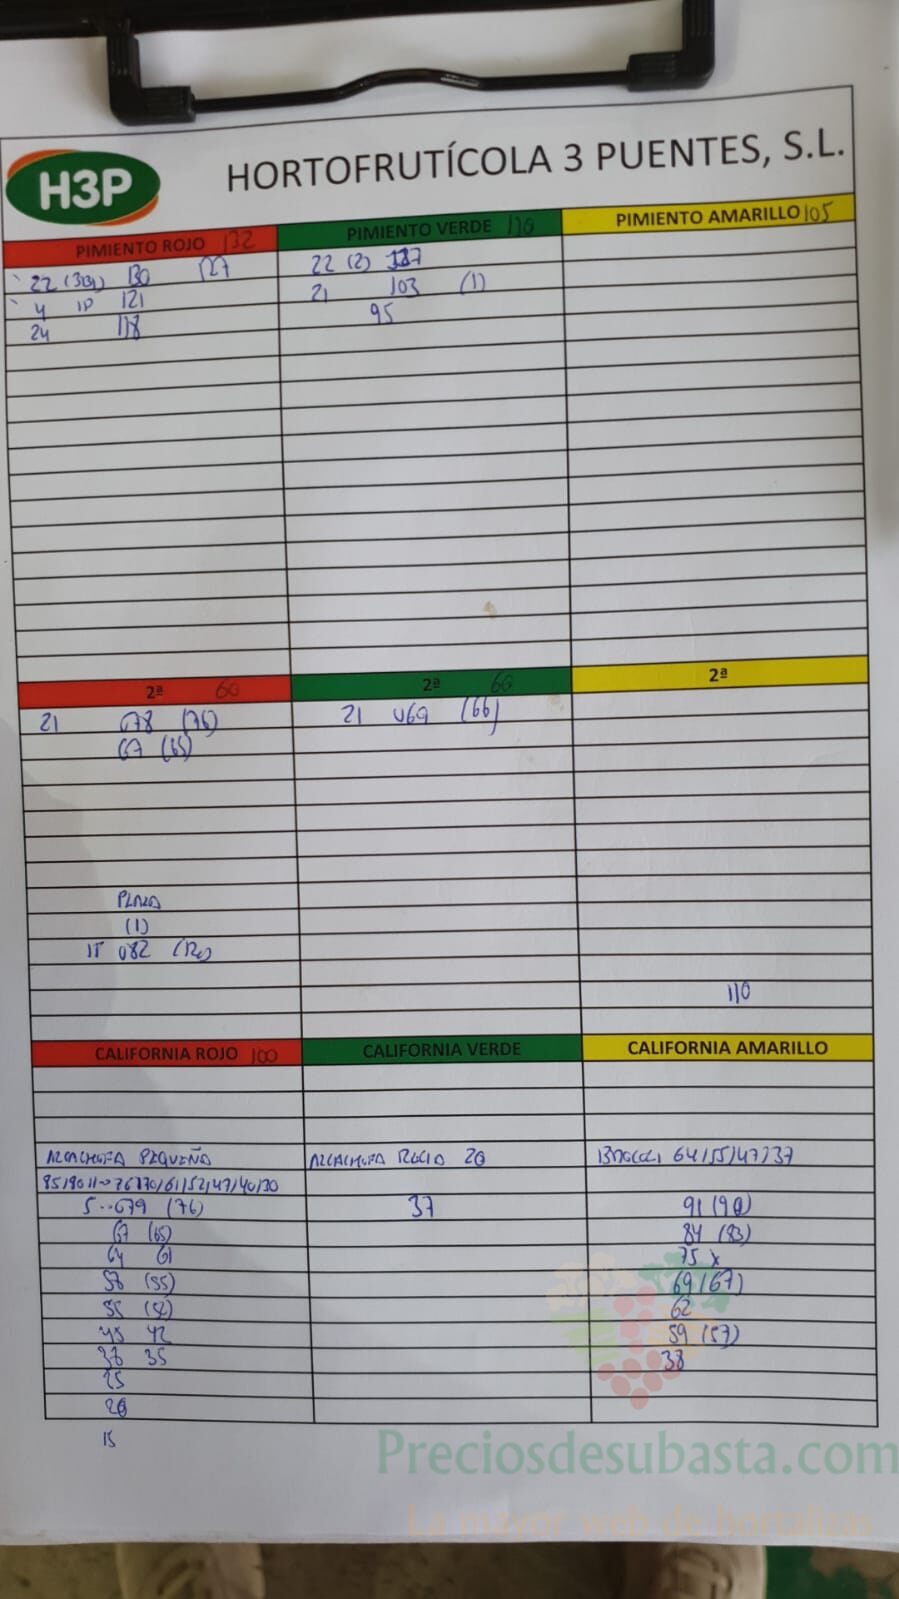 H3P
HORTOFRUTÍCOLA 3 PUENTES, S.L.
PIMIENTO ROJO 132
22 (3) 130 127
4 1P 121
24 118
PIMIENTO VERDE 120
22 (2)
21 103 (1)
95
PIMIENTO AMARILLO 105
2ª 60
21 078 (76)
67 (65)
PLAZA
(1)
082
2ª 60
21 069 (66)
2ª
110
CALIFORNIA ROJO 100
ALCACHOFA PEQUEÑA
76/70/61/52/47/40/30
5 --079 (76)
67 (65)
64 61
58 (55)
55
45 42
38 35
25
20
15
CALIFORNIA VERDE
ALCACHOFA 20
37
CALIFORNIA AMARILLO
BROCOLI 64/55/47/37
91 (90)
84 (83)
75 x
69 (67)
62
59 (57)
38
Preciosdesubasta.com
La mayor web de hortalizas